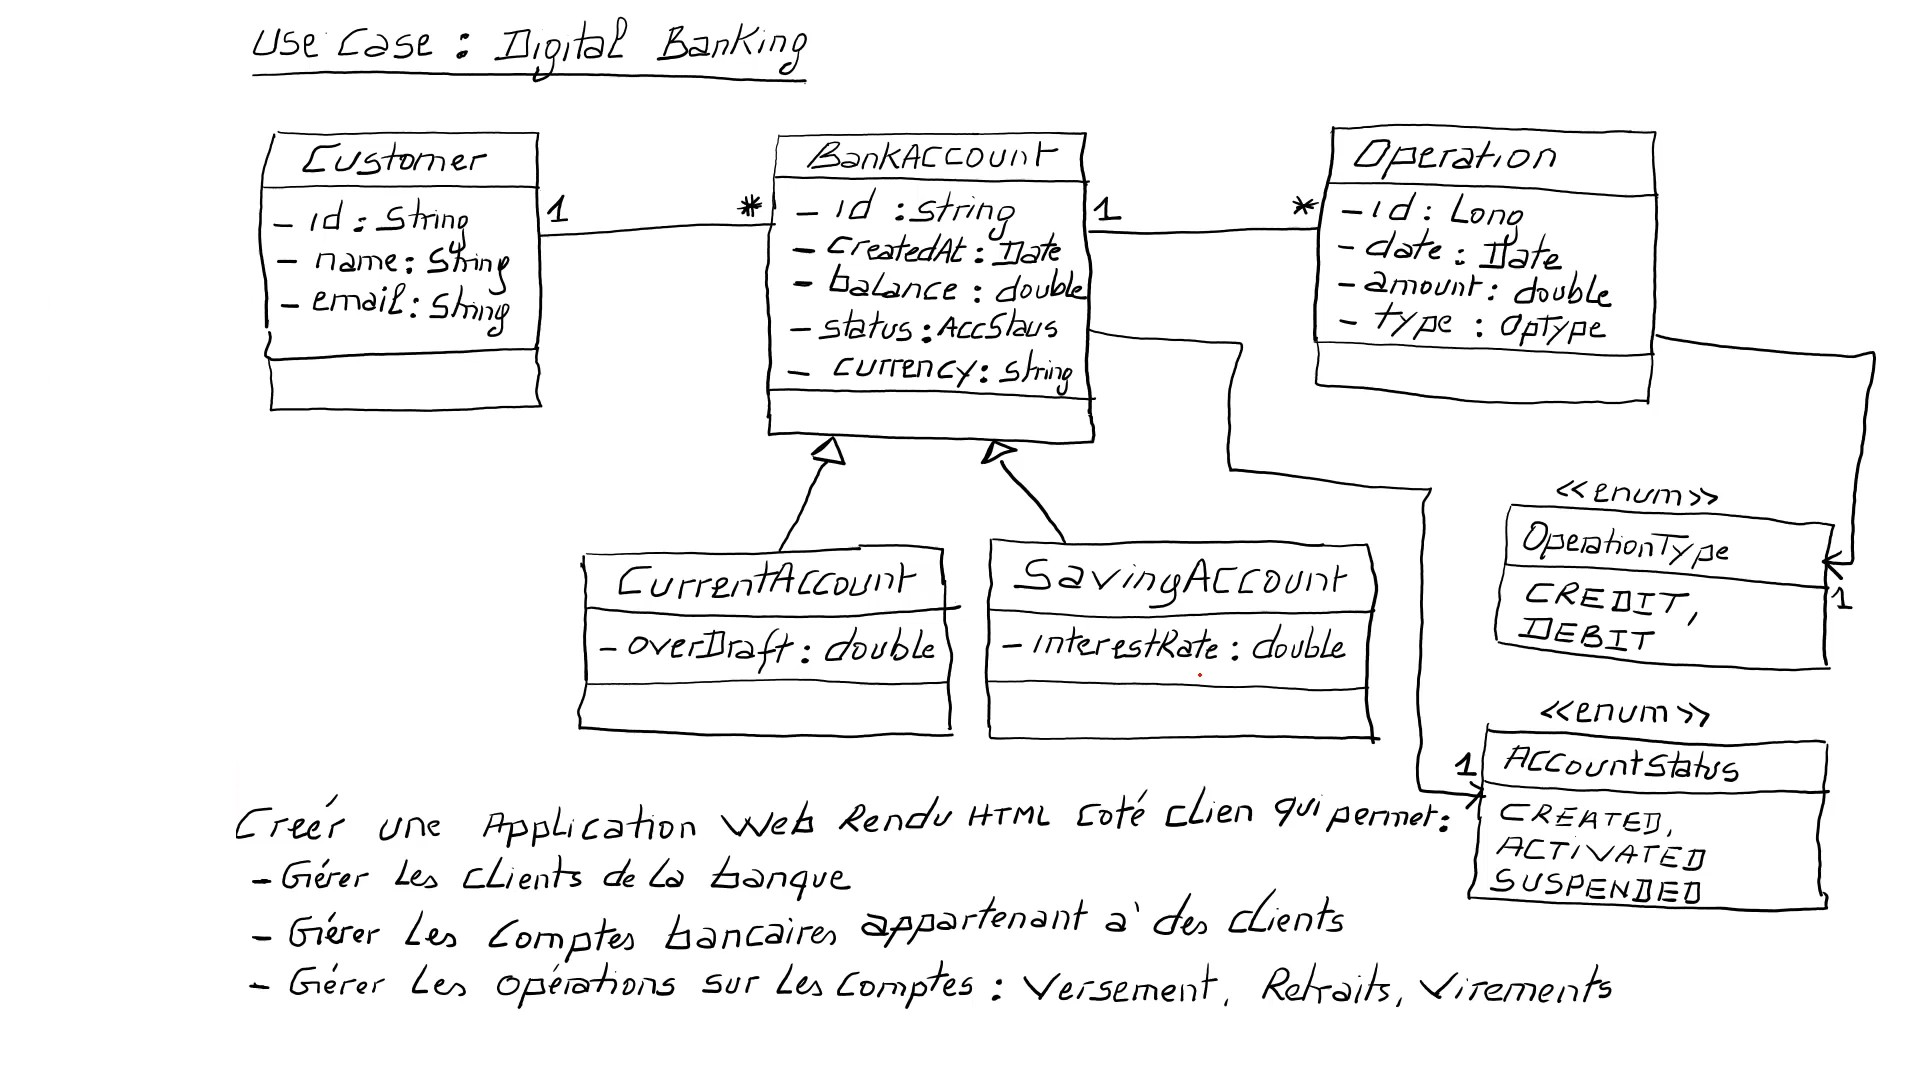 Use Case : Digital Banking
Customer
- id : String
- name : String
- email : String
1
*
BankAccount
- id : String
- createdAt : Date
- balance : double
- status : AccStaus
- currency : String
1
*
Operation
- id : Long
- date : Date
- amount : double
- type : OpType
CurrentAccount
- overDraft : double
SavingAccount
- interestRate : double
<<enum>>
OperationType
CREDIT,
DEBIT
1
<<enum>>
AccountStatus
CREATED,
ACTIVATED
SUSPENDED
1
Creér une Application Web Rendu HTML Coté Clien qui permet :
- Gérer Les clients de la banque
- Gérer Les Comptes bancaires appartenant à des clients
- Gérer Les opérations sur Les Comptes : Versement, Retraits, Virements